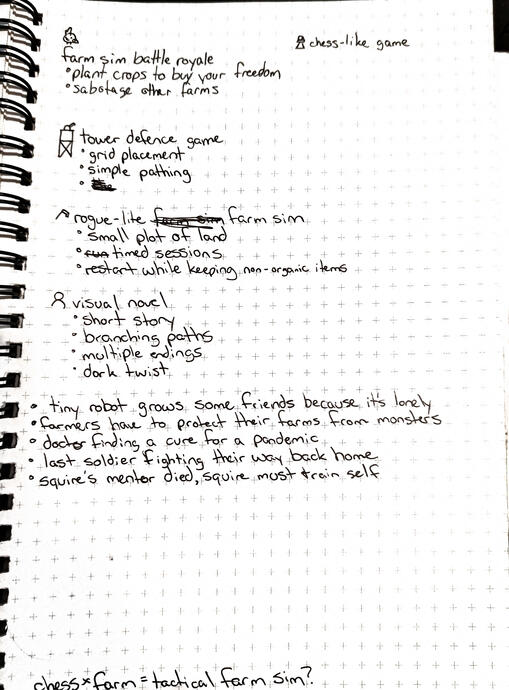 chess-like game
farm sim battle royale
•plant crops to buy your freedom
•sabotage other farms
tower defence game
•grid placement
•simple pathing
•
rogue-lite farm sim farm sim
•small plot of land
•run timed sessions
•restart while keeping non-organic items
visual novel
•short story
•branching paths
•multiple endings
•dark twist
• tiny robot grows some friends because it's lonely
•farmers have to protect their farms from monsters
•doctor finding a cure for a pandemic
•last soldier fighting their way back home
•squire's mentor died, squire must train self
chess × farm = tactical farm sim?